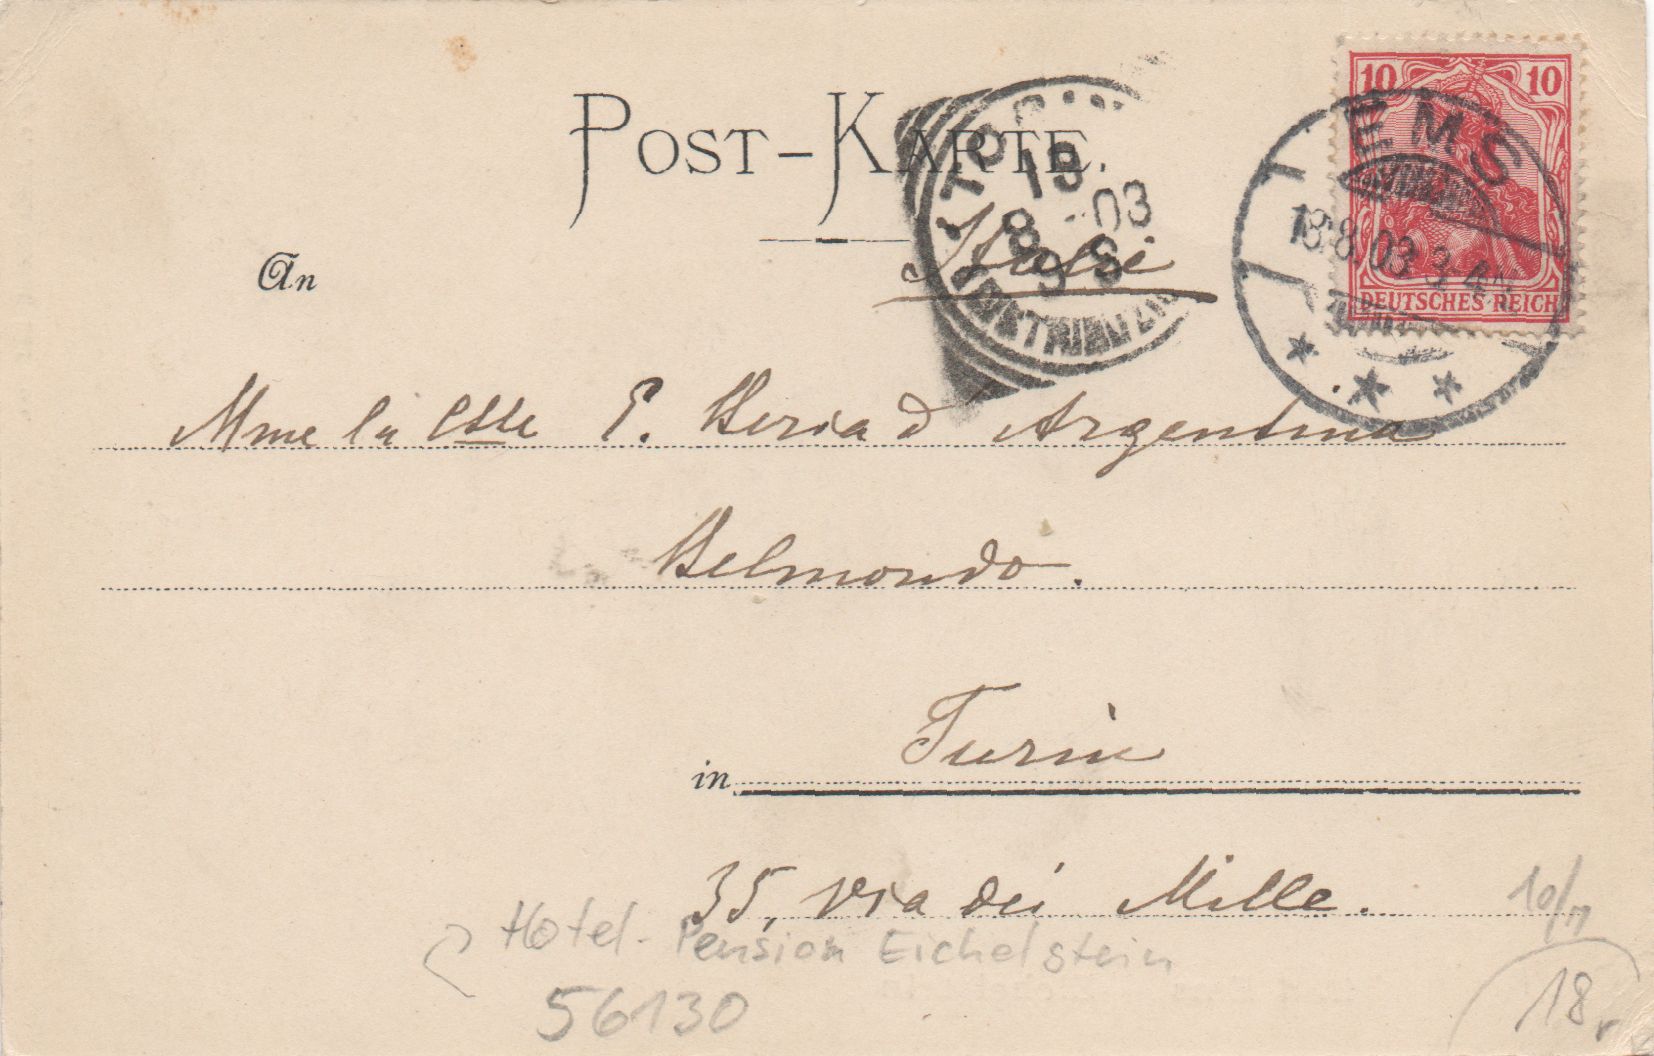 POST-KARTE.
10 10
EMS
18.8.03. 3-4N.
DEUTSCHES REICH
TORINO
19
8 - 03
9 S
An
Italie
Mme la Csse E. Beria d'Argentina
Belmondo.
in Turin
35, via dei Mille.
10/7
Hotel-Pension Eichelstein
56130
18